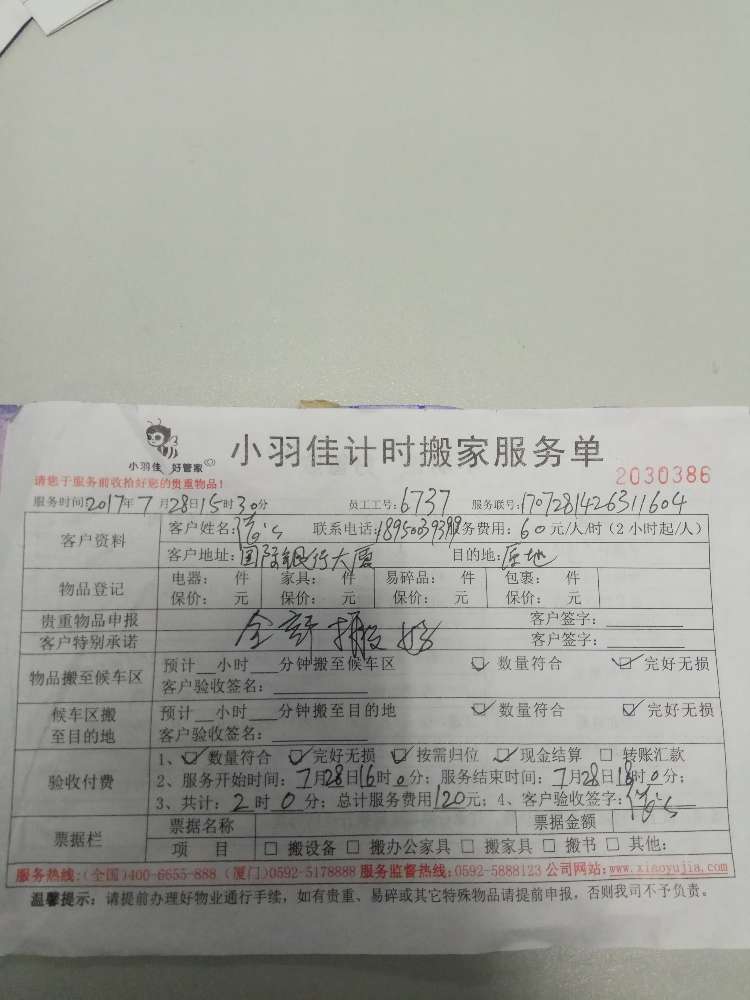 小羽佳 好管家
小羽佳计时搬家服务单
请您于服务前收拾好您的贵重物品！
2030386
服务时间2017年7月28日15时30分 员工工号：6737 服务联号：170728142631 1604
客户资料
客户姓名： 联系电话：18950393 服务费用：60元/人/时（2小时起/人）
客户地址：国际银行大厦 目的地：原地
物品登记
电器： 件 家具： 件 易碎品： 件 包裹： 件
保价： 元 保价： 元 保价： 元 保价： 元
贵重物品申报 客户签字：
客户特别承诺 全部搬好 客户签字：
物品搬至候车区
预计__小时___分钟搬至候车区 数量符合 完好无损
客户验收签名：
候车区搬至目的地
预计__小时___分钟搬至目的地 数量符合 完好无损
客户验收签名：
验收付费
1、数量符合 完好无损 按需归位 现金结算 转账汇款
2、服务开始时间：7月28日16时0分；服务结束时间：7月28日18时0分；
3、共计：2时0分；总计服务费用120元；4、客户验签字：
票据栏
票据名称 票据金额
项 目 搬设备 搬办公家具 搬家具 搬书 其他：
服务热线：(全国)400-6655-888 (厦门)0592-5178888 服务监督热线：0592-5888123 公司网站：www.xiaoyujia.com
温馨提示：请提前办理好物业通行手续，如有贵重、易碎或其它特殊物品请提前申报，否则我司不予负责。